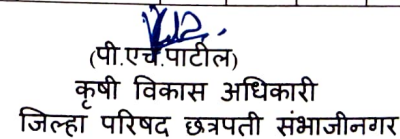 (पी.एच.पाटील)
कृषी विकास अधिकारी
जिल्हा परिषद छत्रपती संभाजीनगर